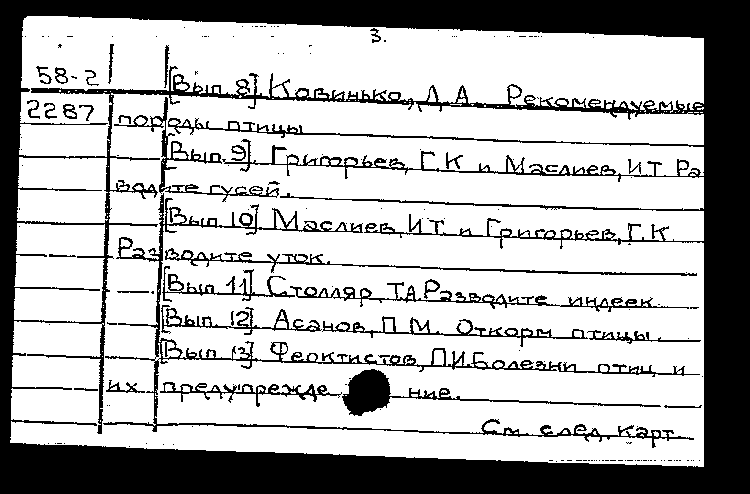 3.
58-2 [Вып. 8]. Ковинько, Д. А. Рекомендуемые
2287 породы птицы
[Вып. 9]. Григорьев, Г. К и Маслиев, И. Т. Ра
водите гусей.
[Вып. 10]. Маслиев, И. Т. и Григорьев, Г. К
Разводите уток.
[Вып. 11]. Столляр, Т. А. Разводите индеек.
[Вып. 12]. Асанов, П. М. Откорм птицы.
[Вып. 13]. Феоктистов, П. И. Болезни птиц и
их предупрежде ние.
См. след. карт.